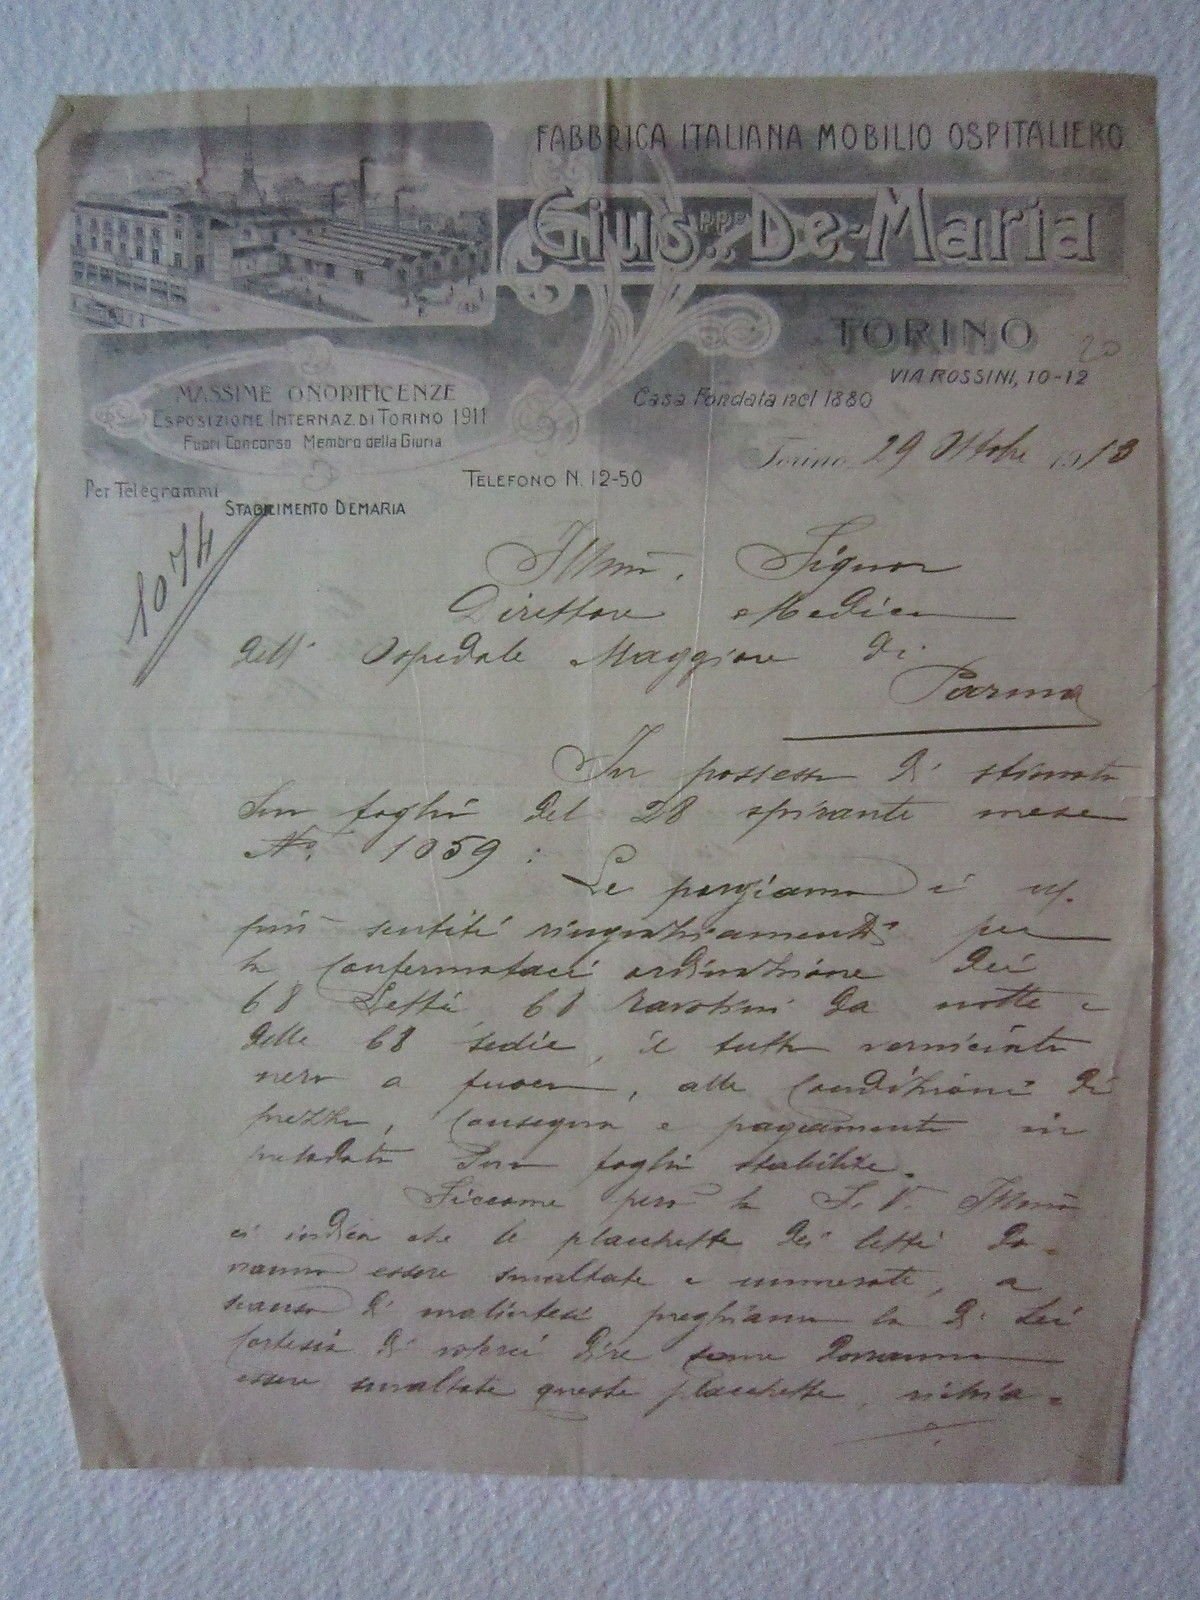 FABBRICA ITALIANA MOBILIO OSPITALIERO
GIUS.PPE DE-MARIA
TORINO
20
VIA ROSSINI, 10-12
Casa Fondata nel 1880
MASSIME ONORIFICENZE
ESPOSIZIONE INTERNAZ. DI TORINO 1911
Fuori Concorso Membro della Giuria
Torino 29 Ottobre 1913
TELEFONO N. 12-50
Per Telegrammi
STABILIMENTO DEMARIA
1074
Illmo. Signor
Direttore Medico
dell' Ospedale Maggiore di
Parma
In possesso di stimato
Suo foglio del 28 spirante mese
No. 1059 :
Le porgiamo i ns.
più sentiti ringraziamenti per
la confermataci ordinazione dei
68 Letti, 68 tavolini da notte e
delle 68 sedie, il tutto verniciato
nero a fuoco, alle condizioni di
prezzo, consegna e pagamento in
predetto Suo foglio stabilite.
Siccome però la S. V. Illma
ci indica che le placchette dei letti do-
vranno essere smaltate e numerate, a
scanso di malintesi preghiamo la di Lei
cortesia di volerci dire come dovranno
essere smaltate queste placchette, richia-